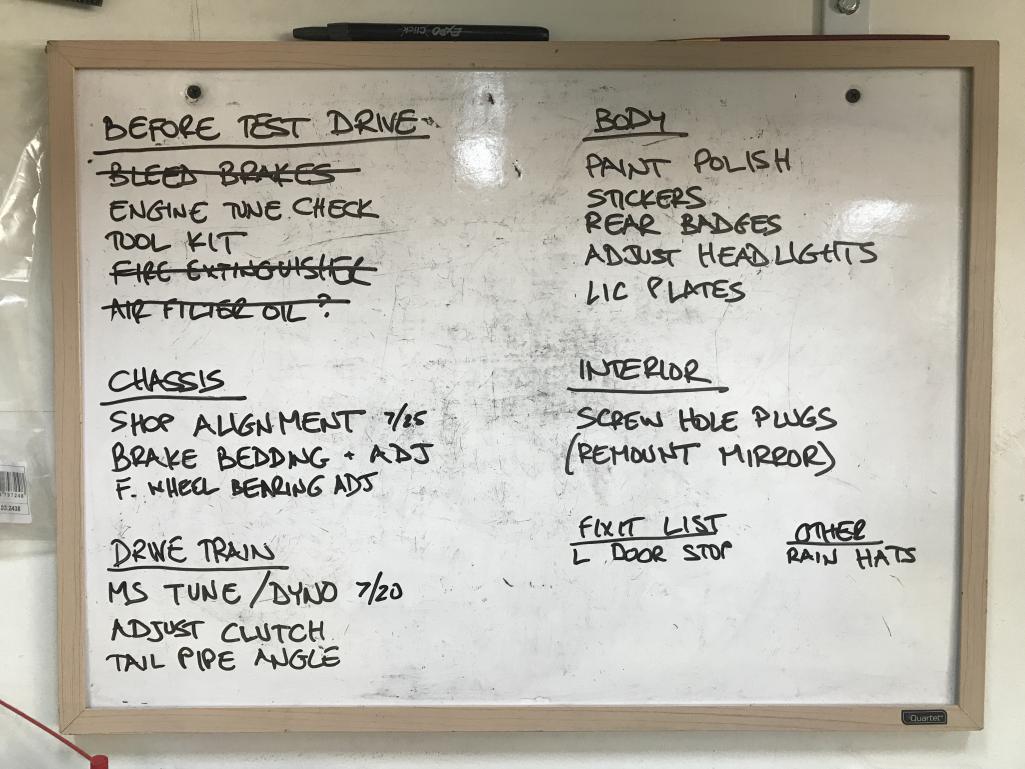 EXPO CLICK
BEFORE TEST DRIVE
BLEED BRAKES
ENGINE TUNE CHECK
TOOL KIT
FIRE EXTINGUISHER
AIR FILTER OIL?
CHASSIS
SHOP ALIGNMENT 7/25
BRAKE BEDDING + ADJ
F. WHEEL BEARING ADJ
DRIVE TRAIN
MS TUNE/DYNO 7/20
ADJUST CLUTCH
TAIL PIPE ANGLE
BODY
PAINT POLISH
STICKERS
REAR BADGES
ADJUST HEADLIGHTS
LIC PLATES
INTERIOR
SCREW HOLE PLUGS
(REMOUNT MIRROR)
FIXIT LIST
L DOOR STOP
OTHER
RAIN HATS
Quartet